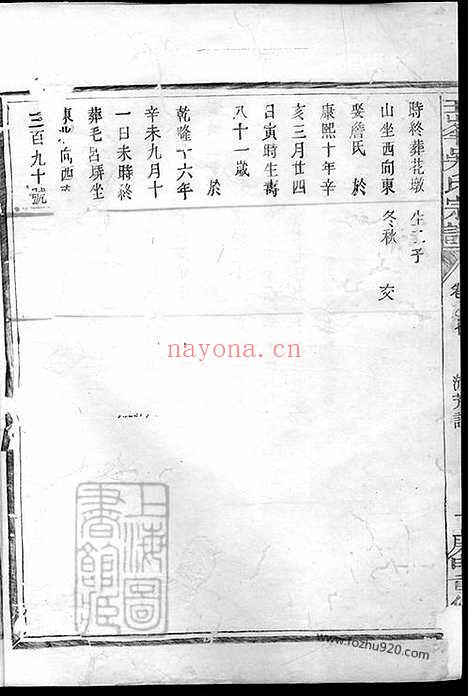 時終葬花墩　生二子
山坐西向東　冬秋　交
娶詹氏　於
康熙十年辛
亥三月廿四
日寅時生壽
八十一歲
於
乾隆十六年
辛未九月十
一日未時終
葬毛呂驛坐
東向西
三百九十號
吳氏宗譜
上海圖書館藏
nayona.cn
www.fozhu920.com